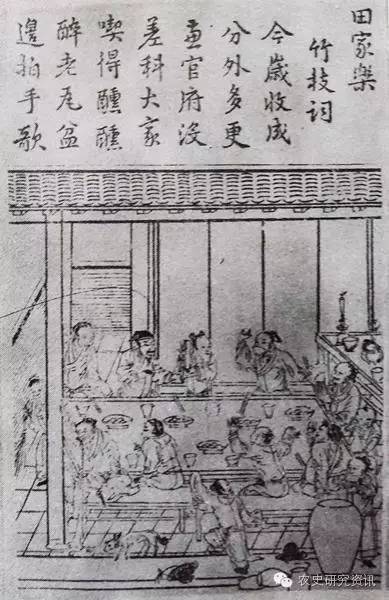 田家樂
竹枝词
今歲收成
分外多更
兼官府沒
差科大家
喫得醺醺
醉老瓦盆
邊拍手歌
农史研究资讯